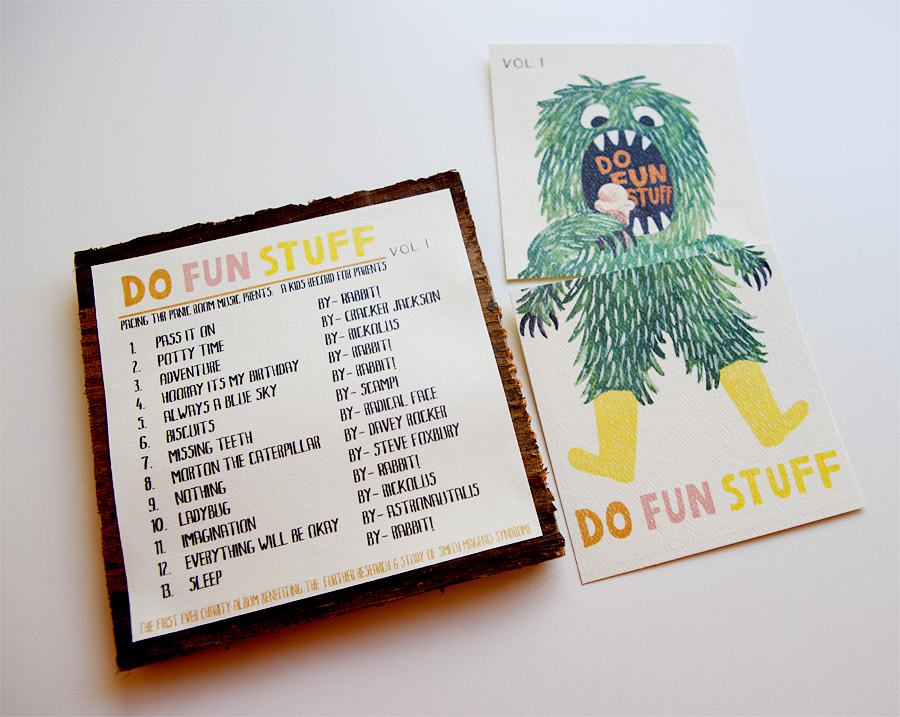 DO FUN STUFF VOL. 1
PACING THR PANIC ROOM MUSIC PRENTS: A KIDS RECORD FOR PARENTS
1. PASS IT ON BY- RABBIT!
2. POTTY TIME BY- CRACKER JACKSON
3. ADVENTURE BY- RICKOLUS
4. HOORAY ITS MY BIRTHDAY BY- RABBIT!
5. ALWAYS A BLUE SKY BY- RABBIT!
6. BISCUITS BY- SCAMPI
7. MISSING TEETH BY- RADICAL FACE
8. MORTON THE CATERPILLAR BY- DAVEY ROCKER
9. NOTHING BY- STEVE FOXBURY
10. LADYBUG BY- RABBIT!
11. IMAGINATION BY- RICKOLUS
12. EVERYTHING WILL BE OKAY BY- ASTRONAUTALIS
13. SLEEP BY- RABBIT!
THE FIRST EVER CHARITY ALBUM BENEFITING THE FURTHER RESEARCH & STUDY OF SMITH MAGENIS SYNDROME
VOL. 1
DO
FUN
STUFF
DO FUN STUFF